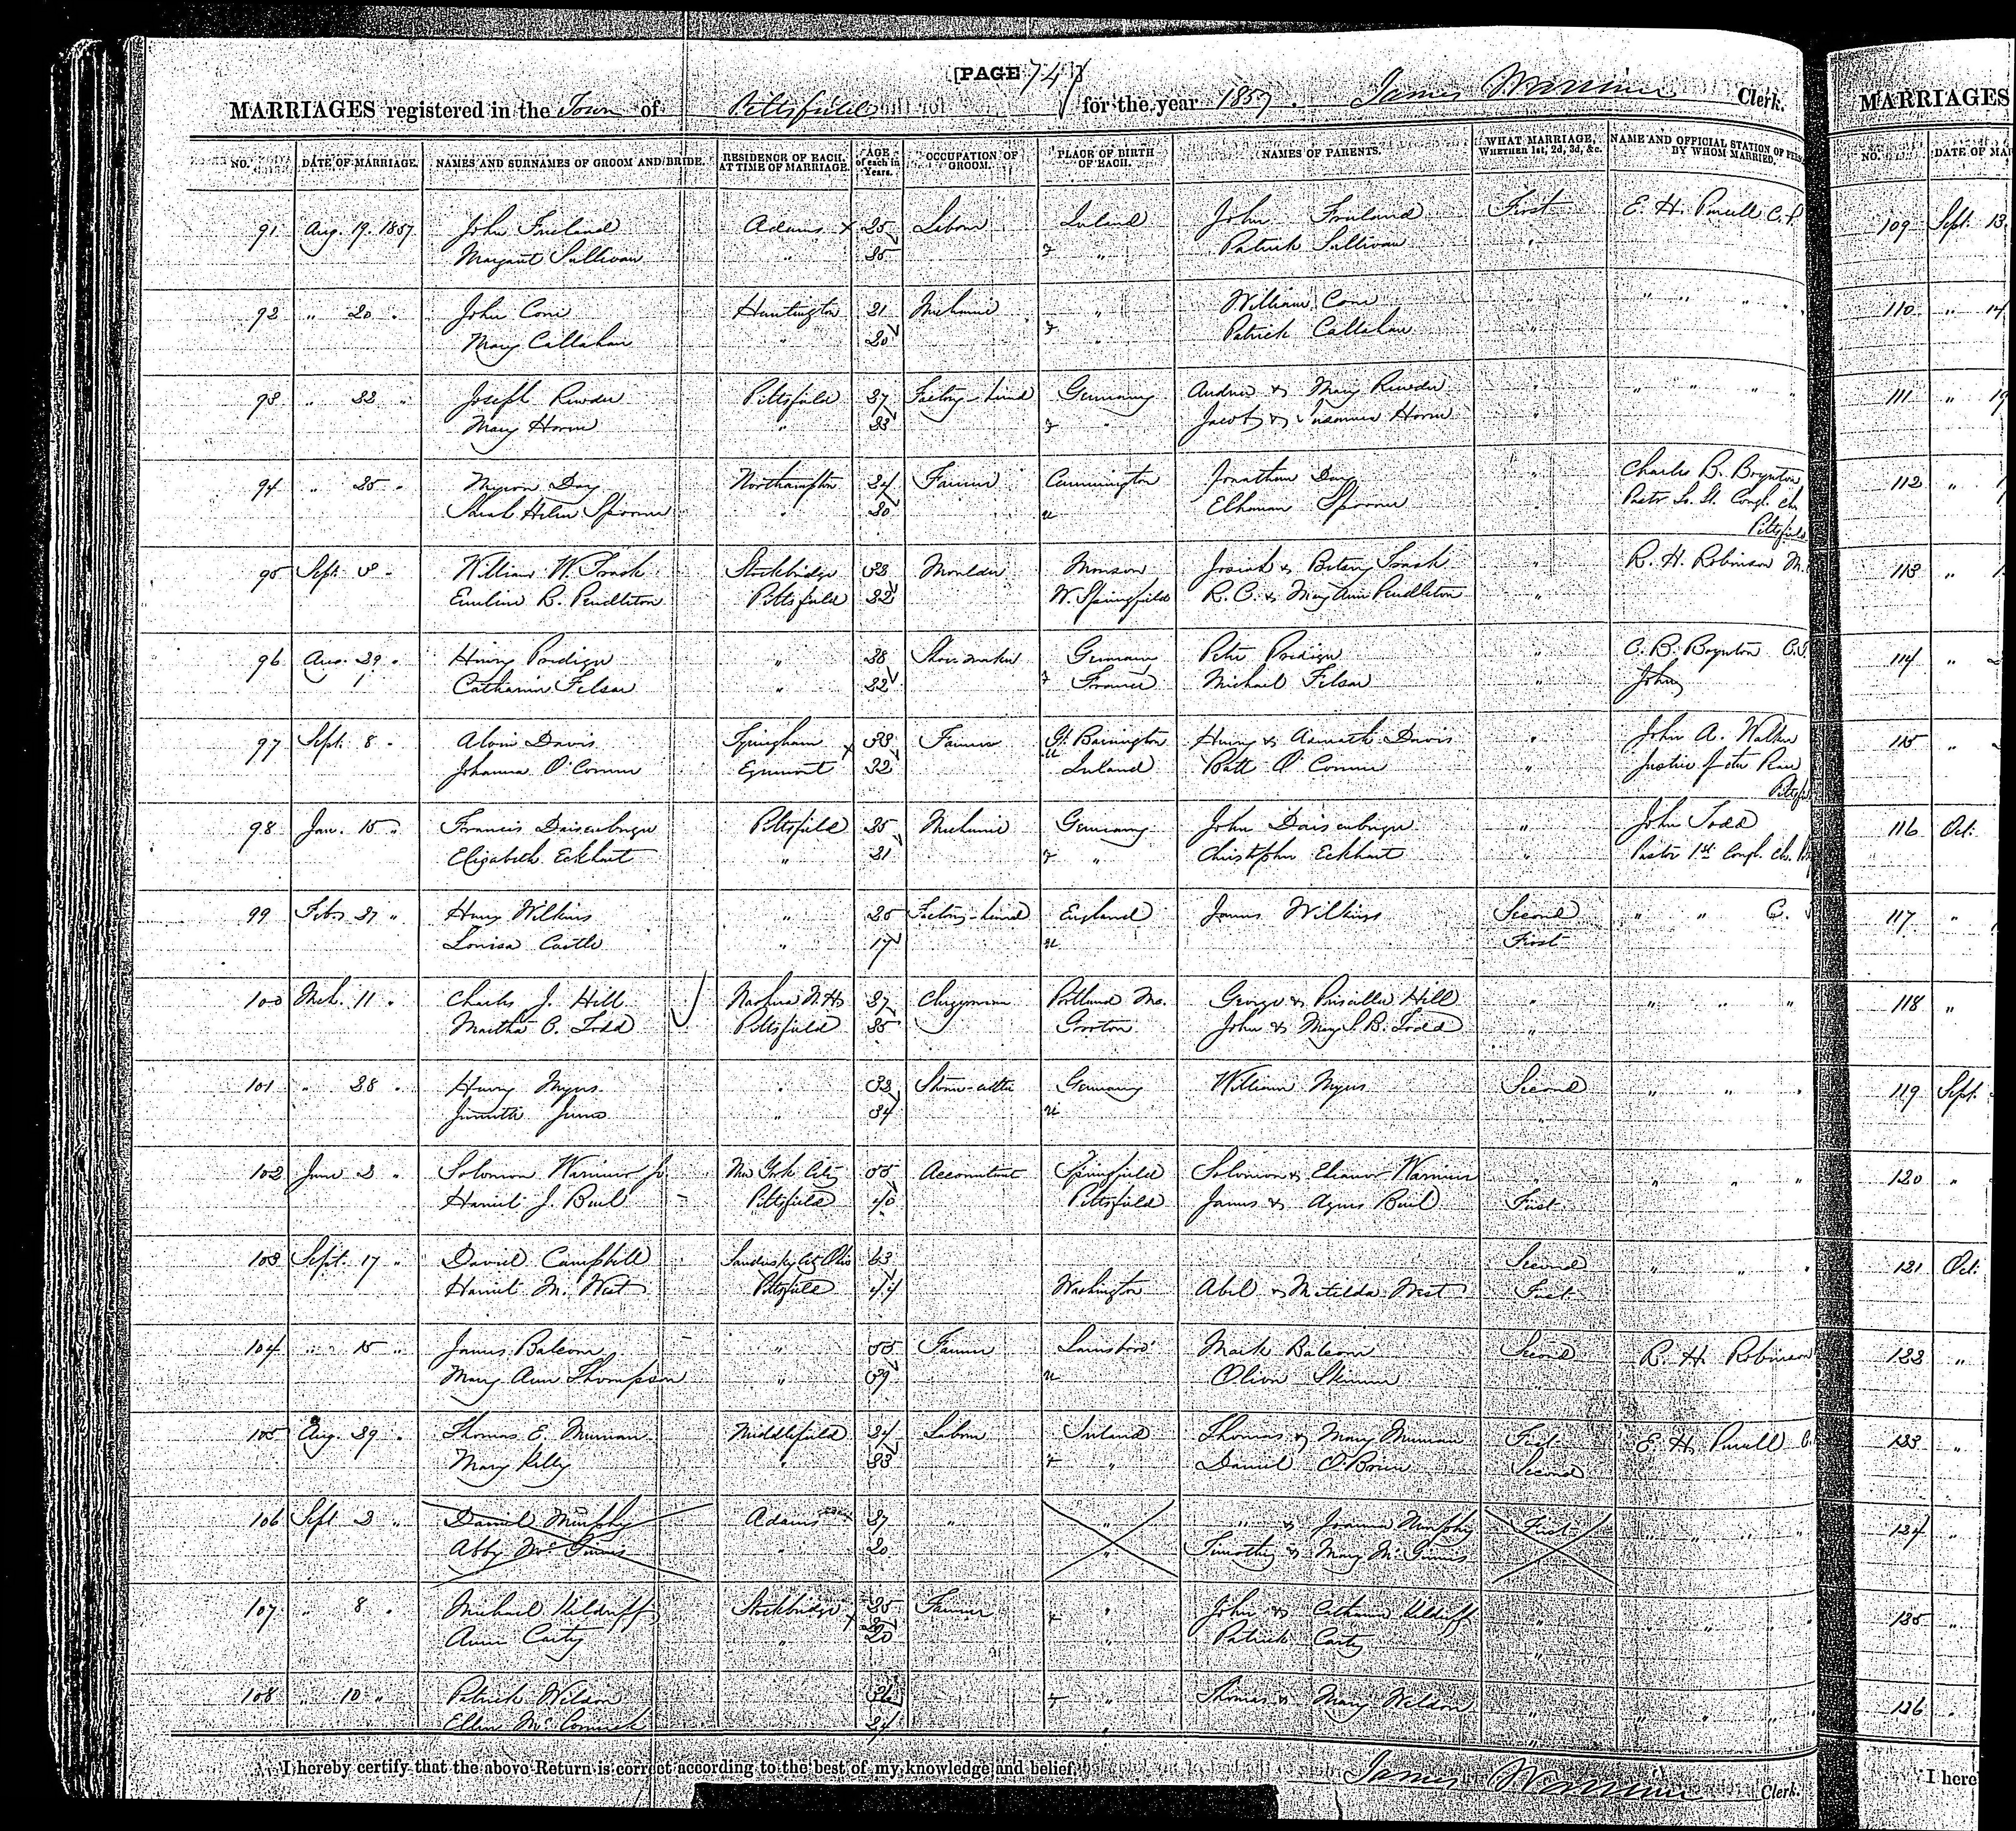 [PAGE 74]
MARRIAGES registered in the Town of Pittsfield for the year 1857. James Warriner Clerk.
NO. DATE OF MARRIAGE. NAMES AND SURNAMES OF GROOM AND BRIDE. RESIDENCE OF EACH, AT TIME OF MARRIAGE. AGE of each in Years. OCCUPATION OF GROOM. PLACE OF BIRTH OF EACH. NAMES OF PARENTS. WHAT MARRIAGE, WHETHER 1st, 2d, 3d, &c. NAME AND OFFICIAL STATION OF BY WHOM MARRIED.
91 Aug. 19. 1857 John Freeland Adams x 25 Labour Ireland John Freeland First E. H. Purcell C. P.
Margaret Sullivan " 25 " Patrick Sullivan "
92 " 20 " John Cone Huntington 21 Mechanic " William Cone " " " " "
Mary Callahan " 20 " Patrick Callahan "
93 " 22 " Joseph Pittsfield 27 Factory-hand Germany Andrew & Mary " " " " "
Mary Horne " 23 " Jacob & Horne "
94 " 25 " Myron Day Northampton 24 Farmer Cummington Jonathan Day " Charles B. Boynton
Sarah Helen Spooner " 20 Spooner " Pastor So. St. Congl. Ch.
Pittsfield
95 Sept. William W. Trask Stockbridge Moulder Monson Josiah & Betsey Trask " R. H. Robinson M.
Emeline R. Pendleton Pittsfield 22 W. Springfield R. C. & Mary Ann Pendleton "
96 Aug. 29 " Henry " 28 Shoe maker Germany Peter " C. B. Boynton
Catharine " 22 France Michael " John
97 Sept. 8 " Alvin Davis Tyringham x Farmer Gt. Barrington Henry & Davis " John A. Walker
Johanna O'Conner Egremont 22 Ireland Patt O'Conner " Justice of the Peace
98 Jan. 15 " Francis Pittsfield 25 Mechanic Germany John " John Todd
Elizabeth Eckhart " 21 " Christopher Eckhart " Pastor 1st Congl. Ch.
99 Feb. 27 " Henry Wilkins " 25 Factory-hand England James Wilkins Second " " C.
Louisa Castle " 17 First
100 Mch. 11 " Charles J. Hill Nashua N.H. 27 Clergyman Portland Me. George & Priscilla Hill " " " "
Martha C. Todd Pittsfield 25 Groton John & Mary S. B. Todd "
101 " 28 " Henry Myers " Stone-cutter Germany William Myers Second " " "
" 34 "
102 June 2 " Solomon Warriner Jr New York City 55 Accountant Springfield Solomon & Eleanor Warriner " " " "
Harriet J. Buel Pittsfield 40 Pittsfield James & Agnes Buel First
103 Sept. 17 " David Campbell Sandusky City Ohio 63 Second " " "
Harriet M. West Pittsfield 44 Washington Abel & Matilda West First
104 " 15 " James Balcom " 55 Farmer Lanesboro' Mark Balcom Second R. H. Robinson
Mary Ann Thompson " 39 Skinner "
105 Aug. 29 " Thomas E. Middlefield 24 Labour Ireland Thomas & Mary First E. H. Purcell C.
Mary Kelly " 23 " Daniel O'Brien Second
106 Sept. 2 " Daniel Murphy Adams 27 " " " & Joanna Murphy First " " " "
Abby McGinnis " 20 " Timothy & Mary McGinnis
107 " 8 " Michael Kilduff Stockbridge x 25 Farmer " John & Catharine Kilduff " " " "
Anne Carty " 20 " Patrick Carty "
108 " 10 " Patrick Weldon 26 " Thomas & Mary Weldon " " " "
Ellen McCormick 24 " "
I hereby certify that the above Return is correct according to the best of my knowledge and belief. James Warriner Clerk.
MARRIAGES
NO. DATE OF MAR
109 Sept. 13
110 " 14
111 " 19
112 "
113 "
114 "
115 "
116 Oct.
117 "
118 "
119 Sept.
120 "
121 Oct.
122 "
123 "
124 "
125 "
126 "
I here